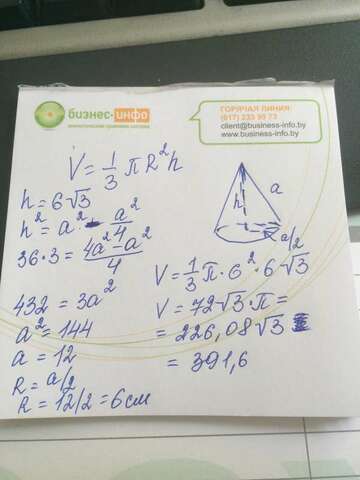 бизнес-инфо
аналитическая правовая система
ГОРЯЧАЯ ЛИНИЯ:
(017) 233 90 73
client@business-info.by
www.business-info.by
V = 1/3 π R² h
h = 6√3
h² = a² - a²/4
36·3 = (4a² - a²)/4
432 = 3a²
a² = 144
a = 12
R = a/2
R = 12/2 = 6 см
h
a
a/2
V = 1/3 π · 6² · 6√3
V = 72√3 · π =
= 226,08√3
= 391,6